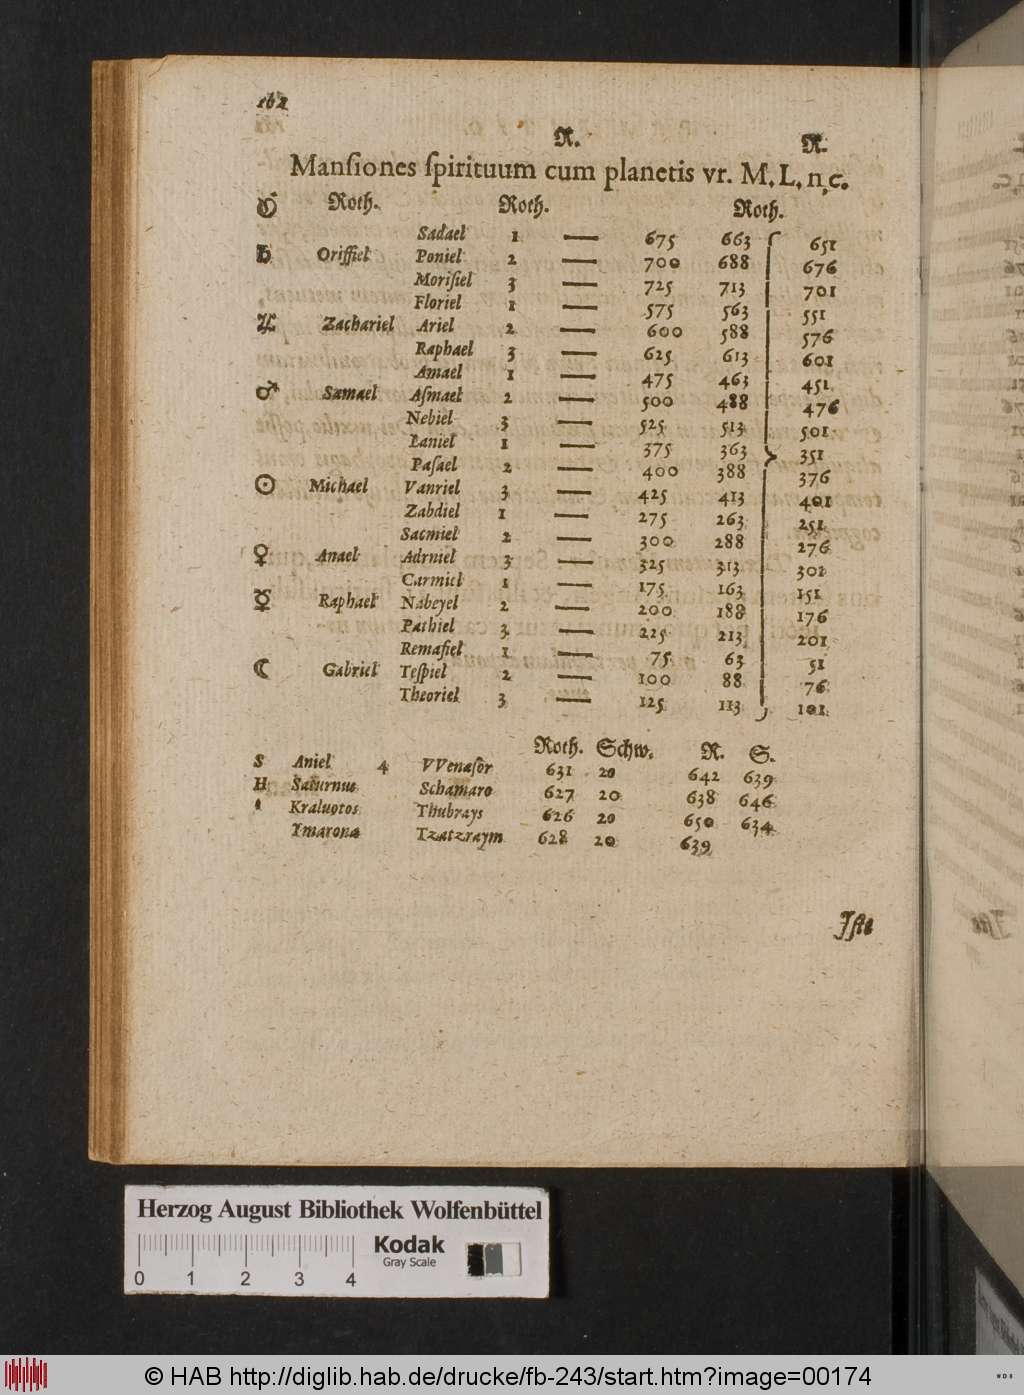 162
R. R.
Manſiones ſpirituum cum planetis vr. M. L. n,c.
Roth. Roth. Roth.
Sadael 1 — 675 663 651
♄ Oriffiel Poniel 2 — 700 688 676
Moriſiel 3 — 725 713 701
Floriel 1 — 575 563 551
♃ Zachariel Ariel 2 — 600 588 576
Raphael 3 — 625 613 601
Amael 1 — 475 463 451
♂ Samael Aſmael 2 — 500 488 476
Nebiel 3 — 525 513 501
Laniel 1 — 375 363 351
Paſael 2 — 400 388 376
☉ Michael Vanriel 3 — 425 413 401
Zabdiel 1 — 275 263 251
Sacmiel 2 — 300 288 276
♀ Anael Adrniel 3 — 325 313 301
Carmiel 1 — 175 163 151
☿ Raphael Nabeyel 2 — 200 188 176
Pathiel 3 — 225 213 201
Remaſiel 1 — 75 63 51
☾ Gabriel Teſpiel 2 — 100 88 76
Theoriel 3 — 125 113 101
Roth. Schw. R. S.
S Aniel 4 VVenaſor 631 20 642 639
H Saturnus Schamaro 627 20 638 646
Kraluotos Thubrays 626 20 650 634
Ymarona Tzatzraym 628 20 639
Iſte
Herzog August Bibliothek Wolfenbüttel
Kodak
Gray Scale
0 1 2 3 4
© HAB http://diglib.hab.de/drucke/fb-243/start.htm?image=00174